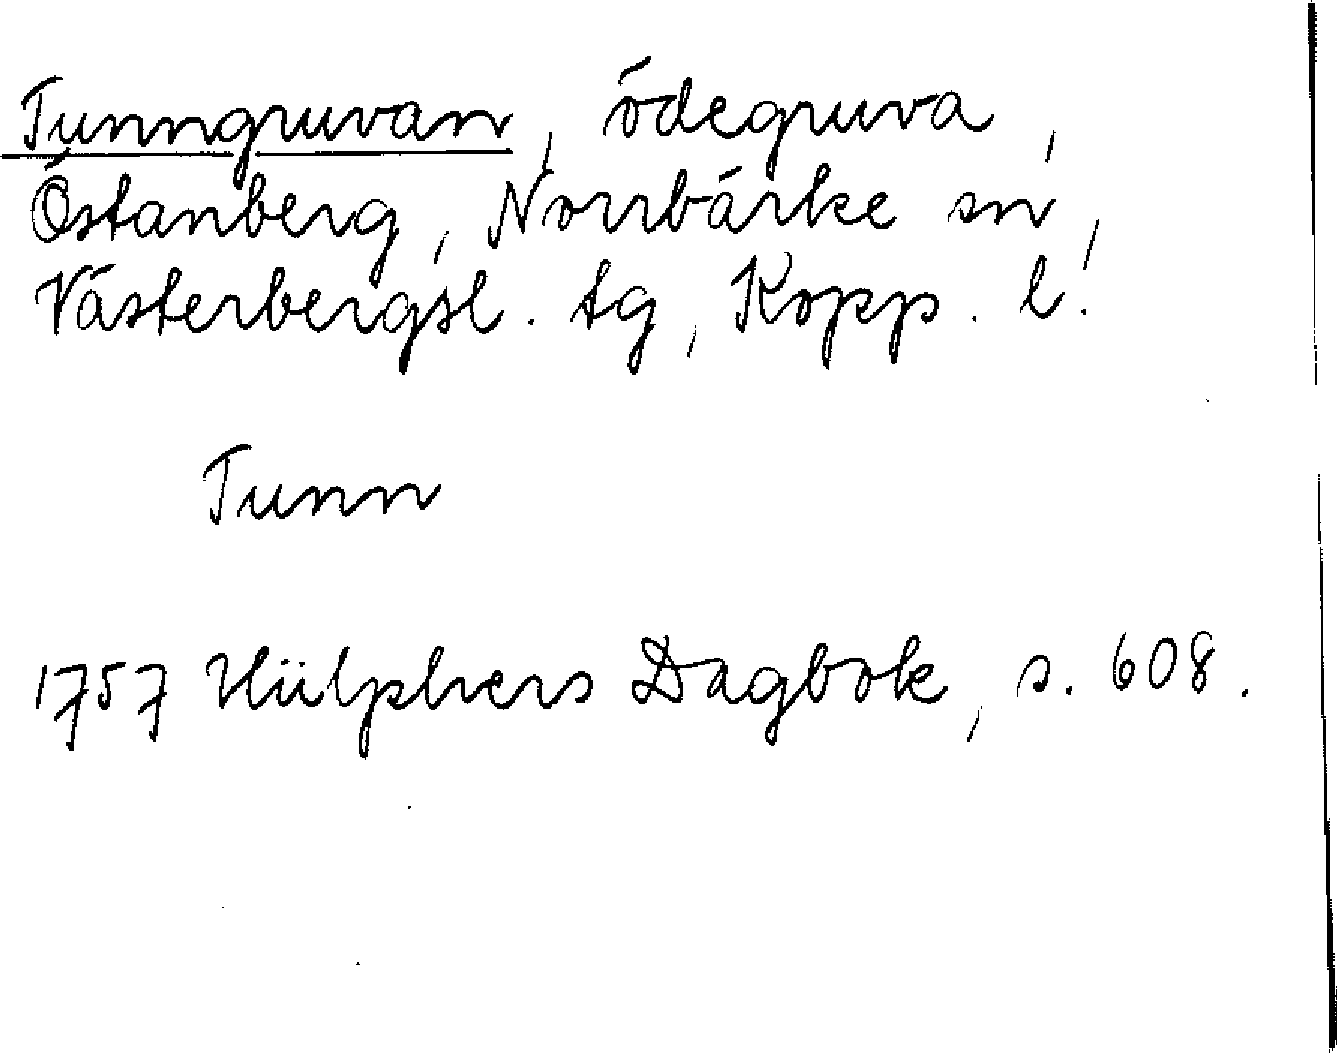 Tunngruvan, ödegruva,
Östanberg, Norrbärke sn,
Västerbergsl. tg, Kopp. l.
Tunn
1757 Hülphers Dagbok, s. 608.